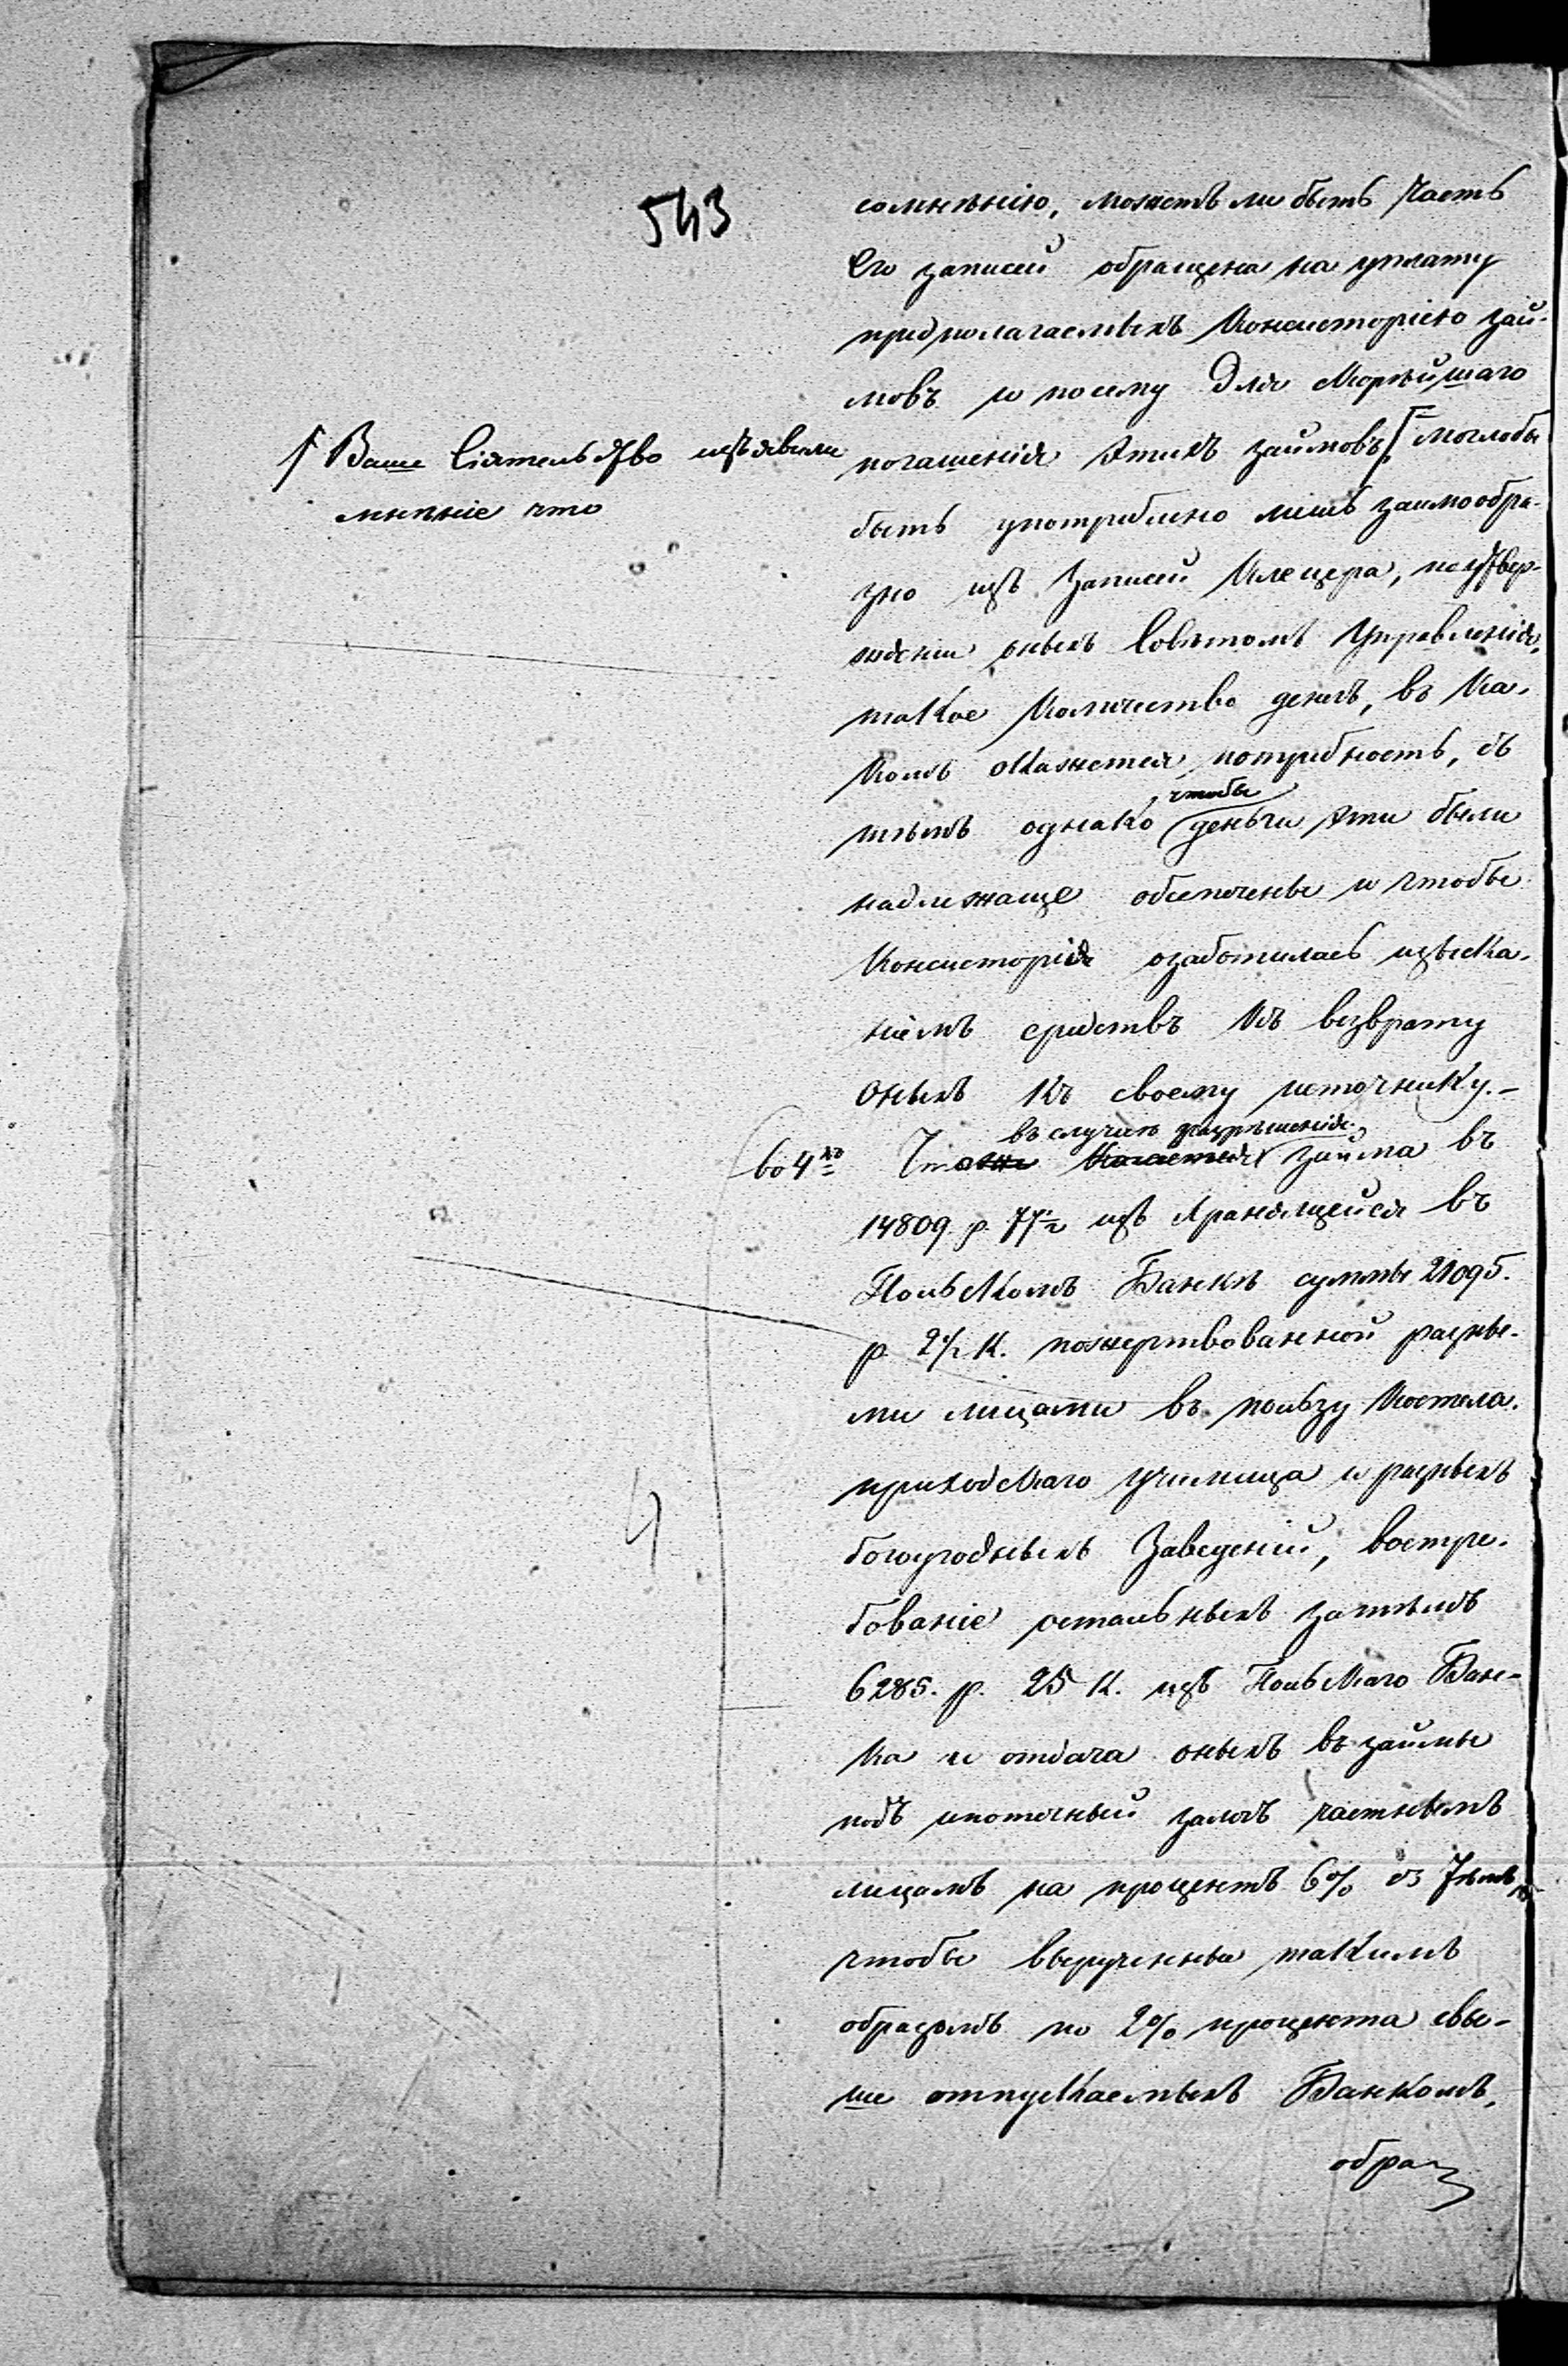 543
сомнѣнію, можетъ ли быть часть
Его записей обращена на уплату
предполагаемыхъ Консисторіею зай-
мовъ и посему для скорѣйшаго
погашенія этихъ займовъ, моглобы
Ваше Сіятельство изъявили
мнѣніе что
быть употреблено лишь заимообра-
зно изъ записей Клецера, по утвер-
жденіи оныхъ Совѣтомъ Управленія,
такое количество денегъ, въ ка-
комъ окажется потребность, съ
тѣмъ однако чтобы деньги эти были
надлежаще обезпечены и чтобы
Консисторія озаботилась изыска-
ніемъ средствъ къ возврату
оныхъ къ своему источнику.-
въ случаѣ разрѣшенія
во 4хъ Чтоже касается займа въ
14809 р. 77 изъ хранящейся въ
Польскомъ Банкѣ суммы 21095.
р. 2½ к. пожертвованной разны-
ми лицами въ пользу костела.
приходскаго училища и разныхъ
богоугодныхъ заведеній, востре-
бованіе остальныхъ затѣмъ
6285. р. 25 к. изъ Польскаго Бан-
ка и отдача оныхъ въ займы
подъ ипотечный залогъ частнымъ
лицамъ на процентъ 6% съ тѣмъ,
чтобы вырученные такимъ
образомъ по 2% процента свы-
ше отпускаемыхъ Банкомъ,
обра
4